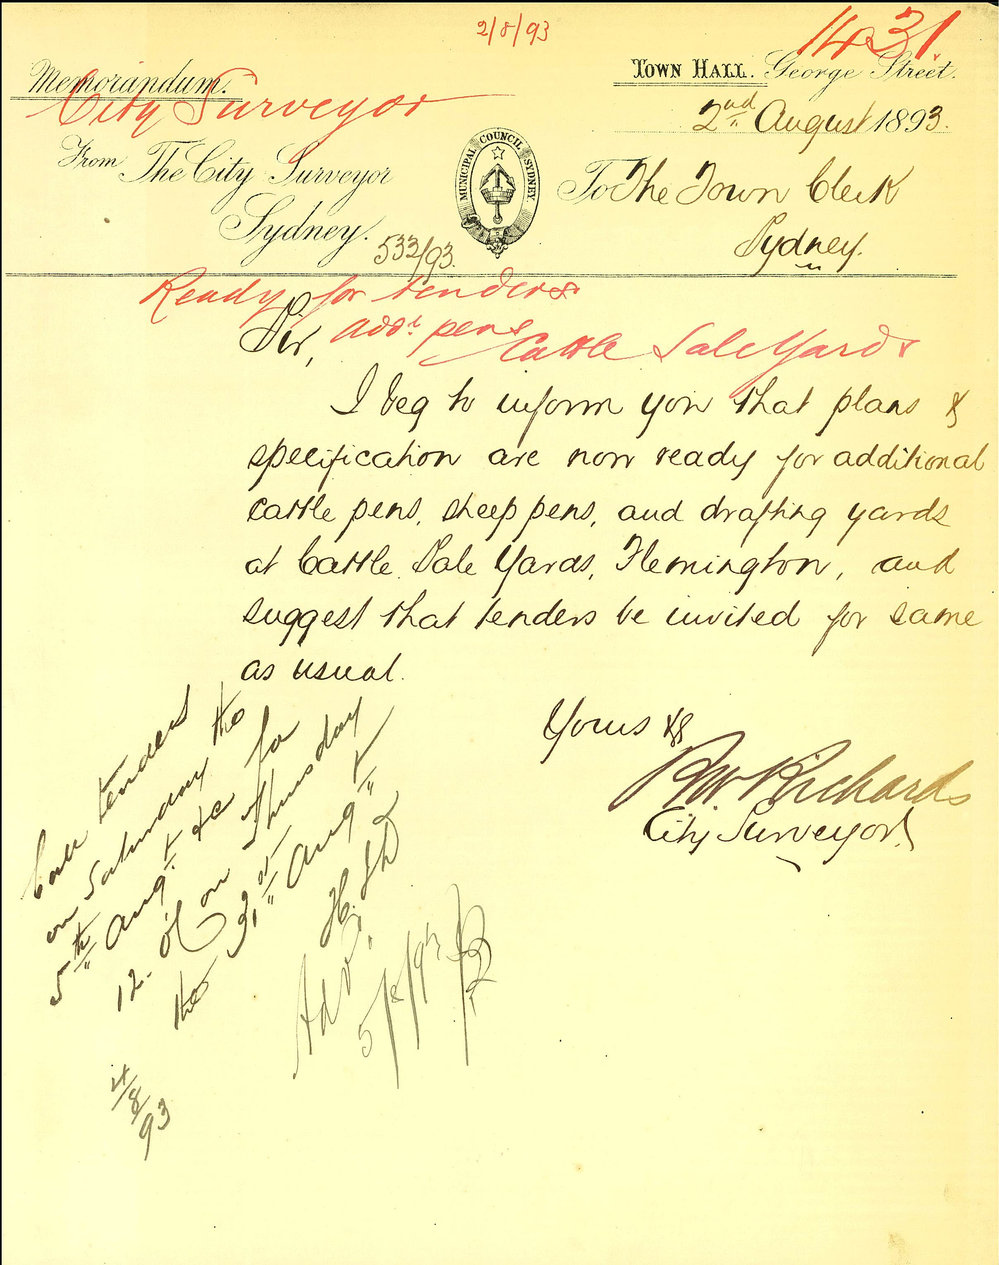 2/8/93
1431
Memorandum.
Town Hall. George Street.
City Surveyor
2nd August 1893.
From The City Surveyor
Sydney.
533/93.
MUNICIPAL COUNCIL SYDNEY
To The Town Clerk
Sydney.
Ready for tenders
addl pens
Cattle Sale Yards
Sir,
I beg to inform you that plans &
specification are now ready for additional
cattle pens, sheep pens, and drafting yards
at Cattle Sale Yards, Flemington, and
suggest that tenders be invited for same
as usual.
Yours &c
R W Richards
City Surveyor
Call tenders
on Saturday the
5th Augt &c for
12 o'C on Thursday
the 31st Augt
4/8/93
Adv.
5/8/93